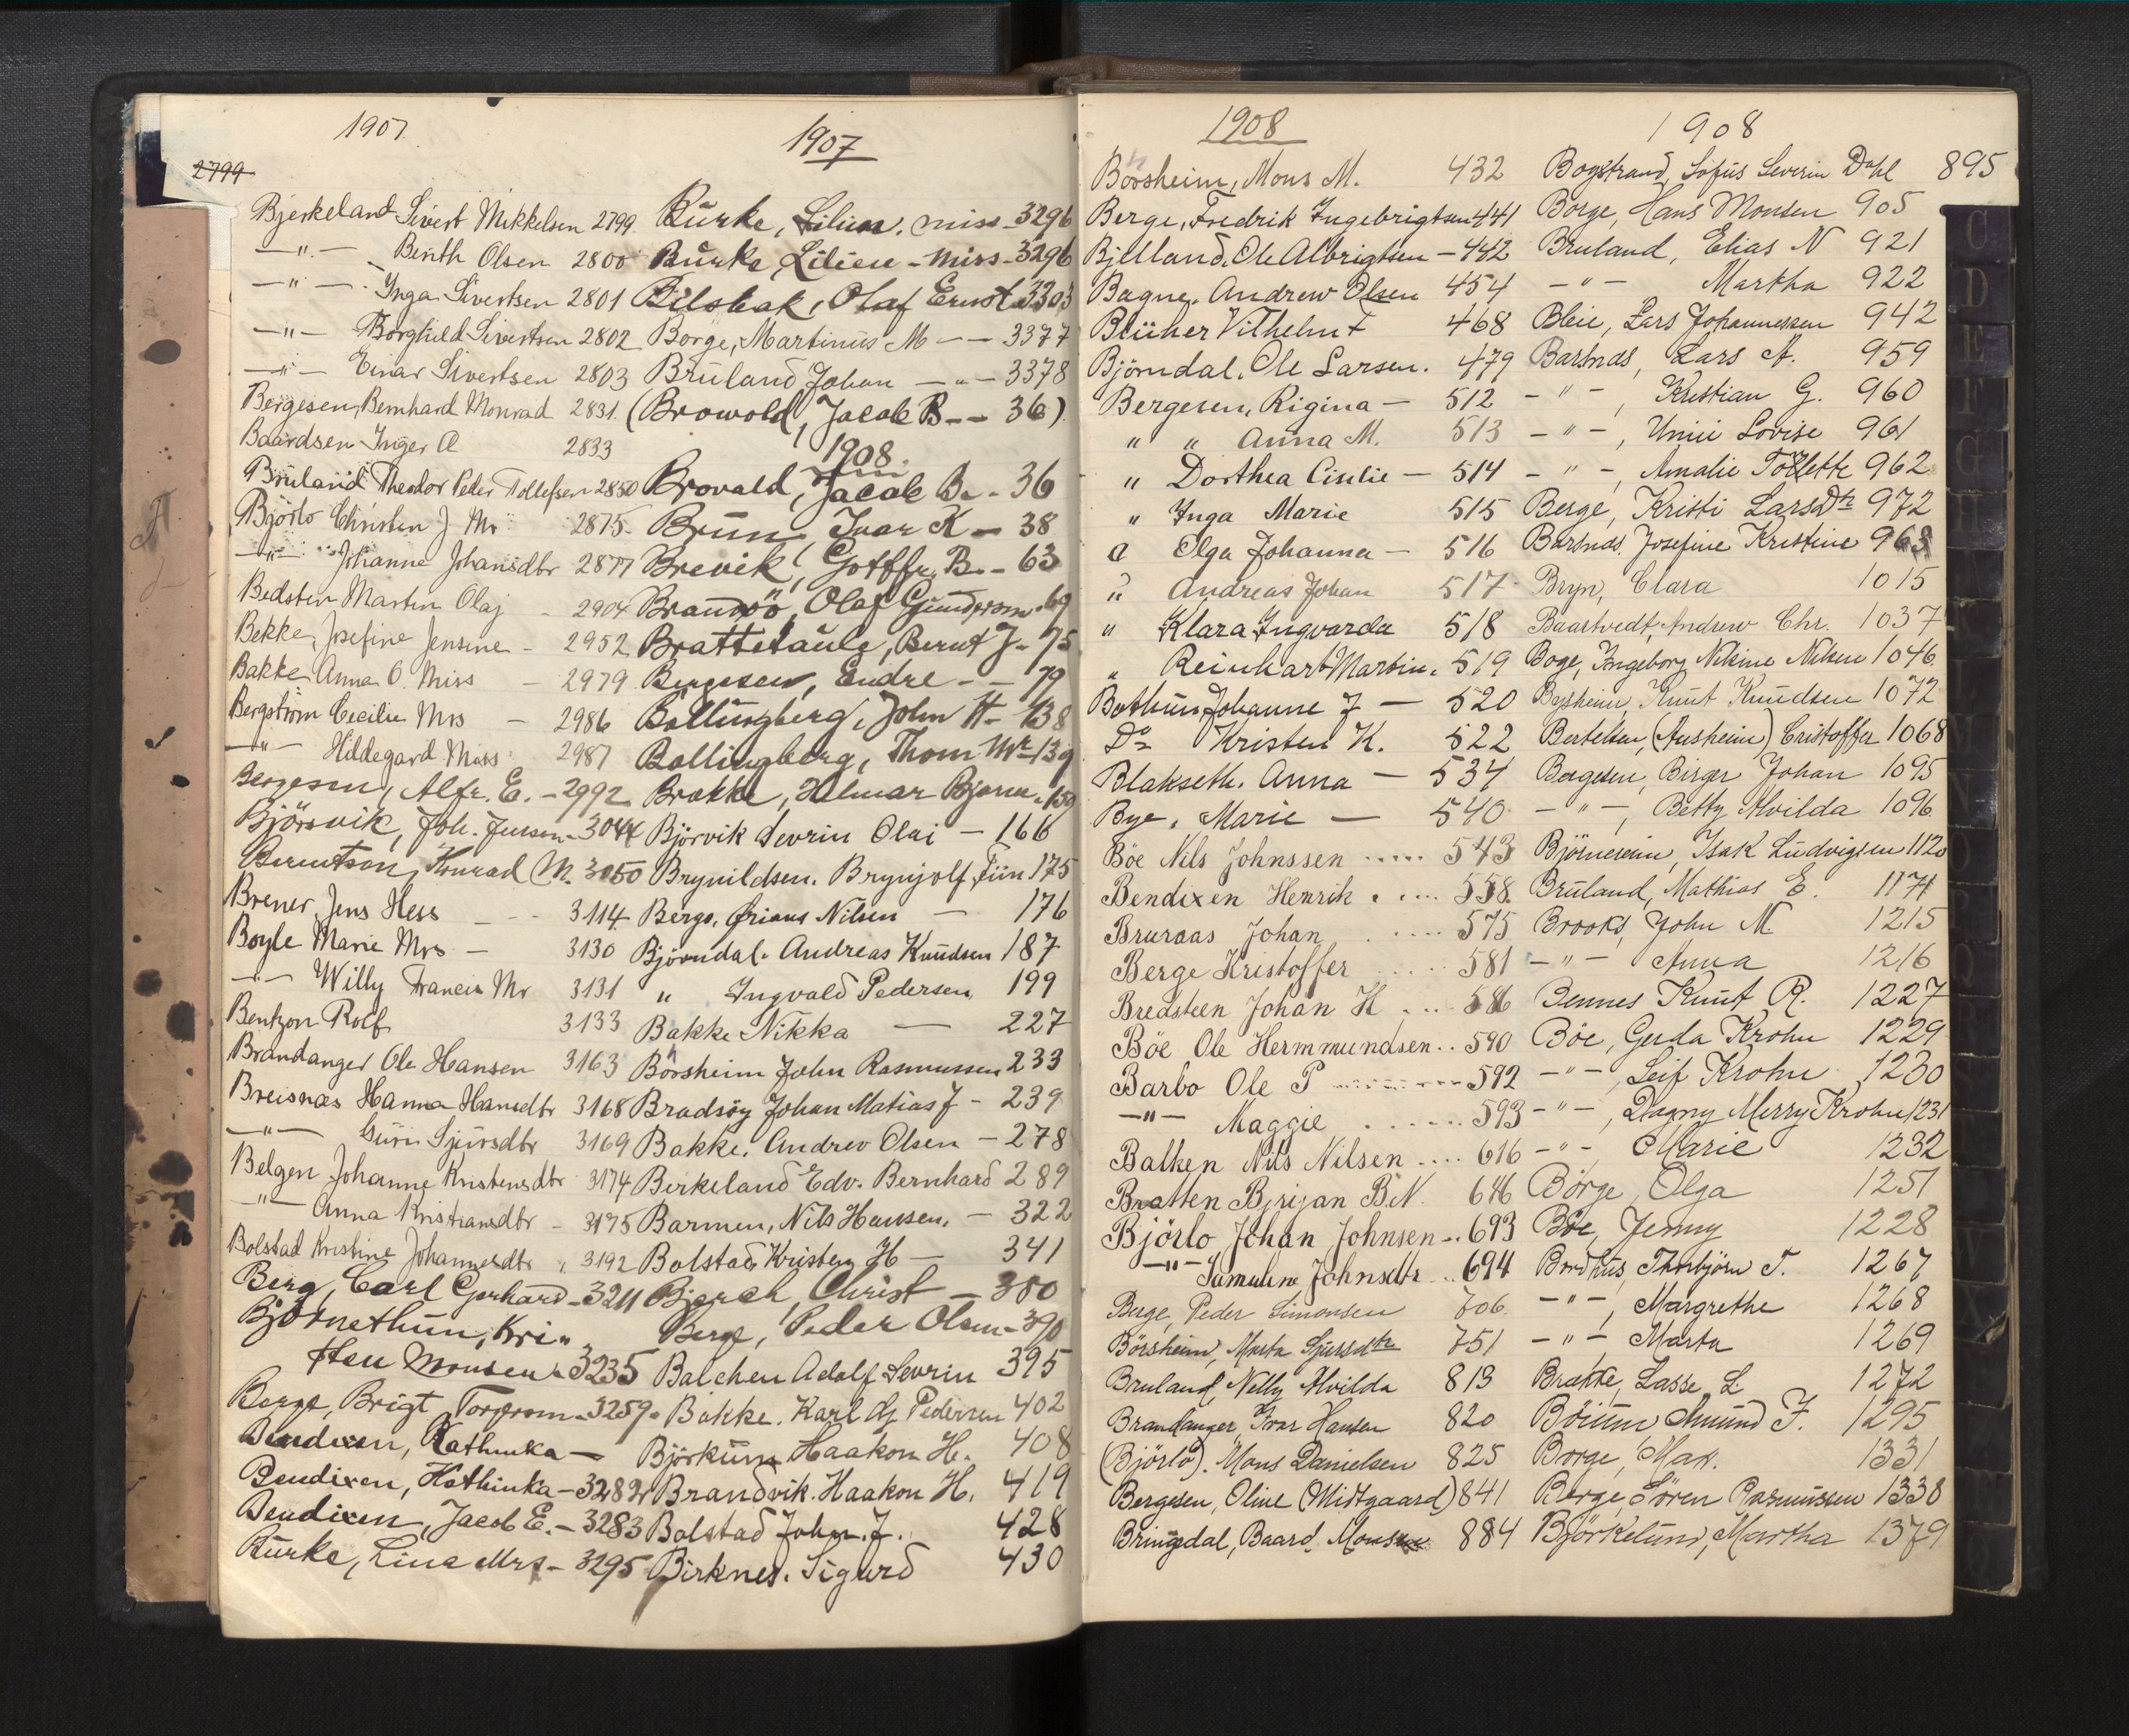 1907
2799
Bjerkeland Sivert Mikkelsen 2799
—"— Berith Olsen 2800
—"— Inga Sivertsen 2801
—"— Borghild Sivertsen 2802
—"— Einar Sivertsen 2803
Bergesen, Bernhard Monrad 2831.
Baardsen Inger A 2833
Bruland Theodor Peder Tollefsen 2850
Björlo Christen J Mr 2875.
—"— Johanne Johansdbr 2877
Bedsten Martin Olaj - 2904
Bekke, Josefine Jensine - 2952
Bakke Anna O. Miss - 2979
Bergström Cecilie Mrs - 2986
—"— Hildegard Miss 2987
Bergesen, Alfr. E. - 2992
Björsvik, Joh. Jenson - 3044
Berentson, Konrad M. 3050
Brener, Jens Hess - - - 3114
Boyle Marie Mrs - 3130
—"— Willy Francis Mr 3131
Bentzon Rolf 3133
Brandanger Ole Hansen 3163
Breisnæs Hanna Hansdbr 3168
—"— Guri Sjursdbr 3169
Belgen Johanne Kristensdbr 3174
"— Anna Kristiansdbr - 3175
Bolstad Kristine Johannesdbr 3192
Berg, Carl Gerhard - 3211
Björnethun, Kri=
sten Monsen - 3235
Berge, Brigt Torgersen - 3259.
Bendixen, Kathinka —
Bendixen, Kathinka - 3282
Bendixen, Jacob E. - 3283
Burke, Lina Mrs - 3295
1907
Burke, Lilian. miss - 3296
Burke, Lilien - miss - 3296
Bilsbak, Olaf Ernst 3303
Borge, Martinus M — 3377
Bruland Johan —"— 3378
(Browold, Jacob B -- 36)
1908.
Brovald, Jacob B. - 36
Brun, Ivar K - 38
Brevik, Gottfr. B. - 63
Brandsö, Olaf Gunderson - 69
Brattetaule, Bernt J - 75
Bergesen, Endre - - 79
Bollingberg, John H - 138
Bollingberg, Thom Mr - 139
Brakke, Hilmar Bjarne - 159
Björvik Sevrin Olai — 166
Brynildsen. Brynjolf Fiin 175
Berge, Nilsen — 176
Björndal. Andreas Knudsen 187
" Ingvald Pedersen, 199
Bakke Nikka — 227
Börsheim John Rasmussen 233
Bradsöy Johan Matias J - 239
Bakke, Andrew Olsen - 278
Birkeland Edv. Bernhard 289
Barmen, Nils Hansen, - 322
Bolstad Kristen H — 341
Bjerck, Christ - 380
Berge, Peder Olsen - 390
Balchen Adolf Sevrin 395
Bakke. Karl Aj Pedersen 402
Björkum Haakon H. 408
Brandvik. Haakon H. 419
Bolstad John. J. 428
Birknes. Sigurd 430
1908
Börsheim, Mons M. 432
Berge, Fredrik Ingebrigtsen 441
Bjelland. Ole Albrigtsen - 442
Bagne. Andrew Olsen 454
Blüher Vilhelm F 468
Björndal. Ole Larsen. 479
Bergesen, Rigina — 512
" " Anna M. 513
" Dorthea Cisilie — 514
" Inga Marie 515
" Olga Johanna — 516
" Andreas Johan 517
" Klara Ingvarda 518
" Reinhart Martin. 519
Bothun Johanne J — 520
Do Kristen K. 522
Blakseth. Anna — 534
Bye. Marie — 540
Böe Nils Johnssen ..... 543
Bendixen Henrik . .... 558.
Bruraas Johan ..... 575
Berge Kristoffer ..... 581
Bredsteen Johan H .... 586
Böe Ole Hermmundsen.. 590
Barbo Ole P ......... 592
—"— Maggie ....... 593
Balken Nils Nilsen .... 616
Bratten Brijan B.N. 646
Björlo Johan Johnsen -.. 693
—"— Samuline Johnsdtr .. 694
Berge, Peder Simonsen 706.
Börsheim, Marta Sjursdtr 751
Bruland, Nelly Alvilda 813
Brandanger, Ivar Hansen 820
(Björlo). Mons Danielsen 825
Bergesen, Oline (Midtgaard) 841
Bringedal, Baard. Monsen 884
1908
Bogstrand, Sofus Severin Dahl 895
Borge, Hans Monsen 905
Bruland, Elias N 921
—"— Martha 922
Bleie, Lars Johannessen 942
Barsnes, Lars A. 959
—"—, Kristian G. 960
—"—, Unni Lovise 961
—"—, Amalie Tollette 962
Berge, Kristi Larsdtr 972
Barsnes, Josefine Kristine 963
Bryn, Clara 1015
Baartvedt, Andrew Chr. 1037
Boge, Ingeborg Nikine Nilsen 1046.
Bersheim, Knut Knudsen 1072
Bertelsen, (Ausheim) Cristoffer 1068
Bergesen, Birger Johan 1095
—"—, Betty Alvilda 1096.
Björneseim, Isak Ludvigsen 1120
Bruland, Mathias E. 1174
Brooks, John M. 1215
—"— Anna 1216
Bennes Knut R. 1227
Böe, Gerda Krohn 1229
—"—, Leif Krohn 1230
—"—, Dagny Merry Krohn 1231
—"— Marie 1232
Börge, Olga 1251
Böe, Jenny 1228
Bordhus, Thorbjörn T. 1267
—"—, Margrethe 1268
—"—, Marta 1269
Brakke, Lasse L 1272
Böium Amund J. 1295
Borge, Max. 1331
Berge, Sören Rasmussen 1338
Björkelund, Martha 1379
C
D
E
F
G